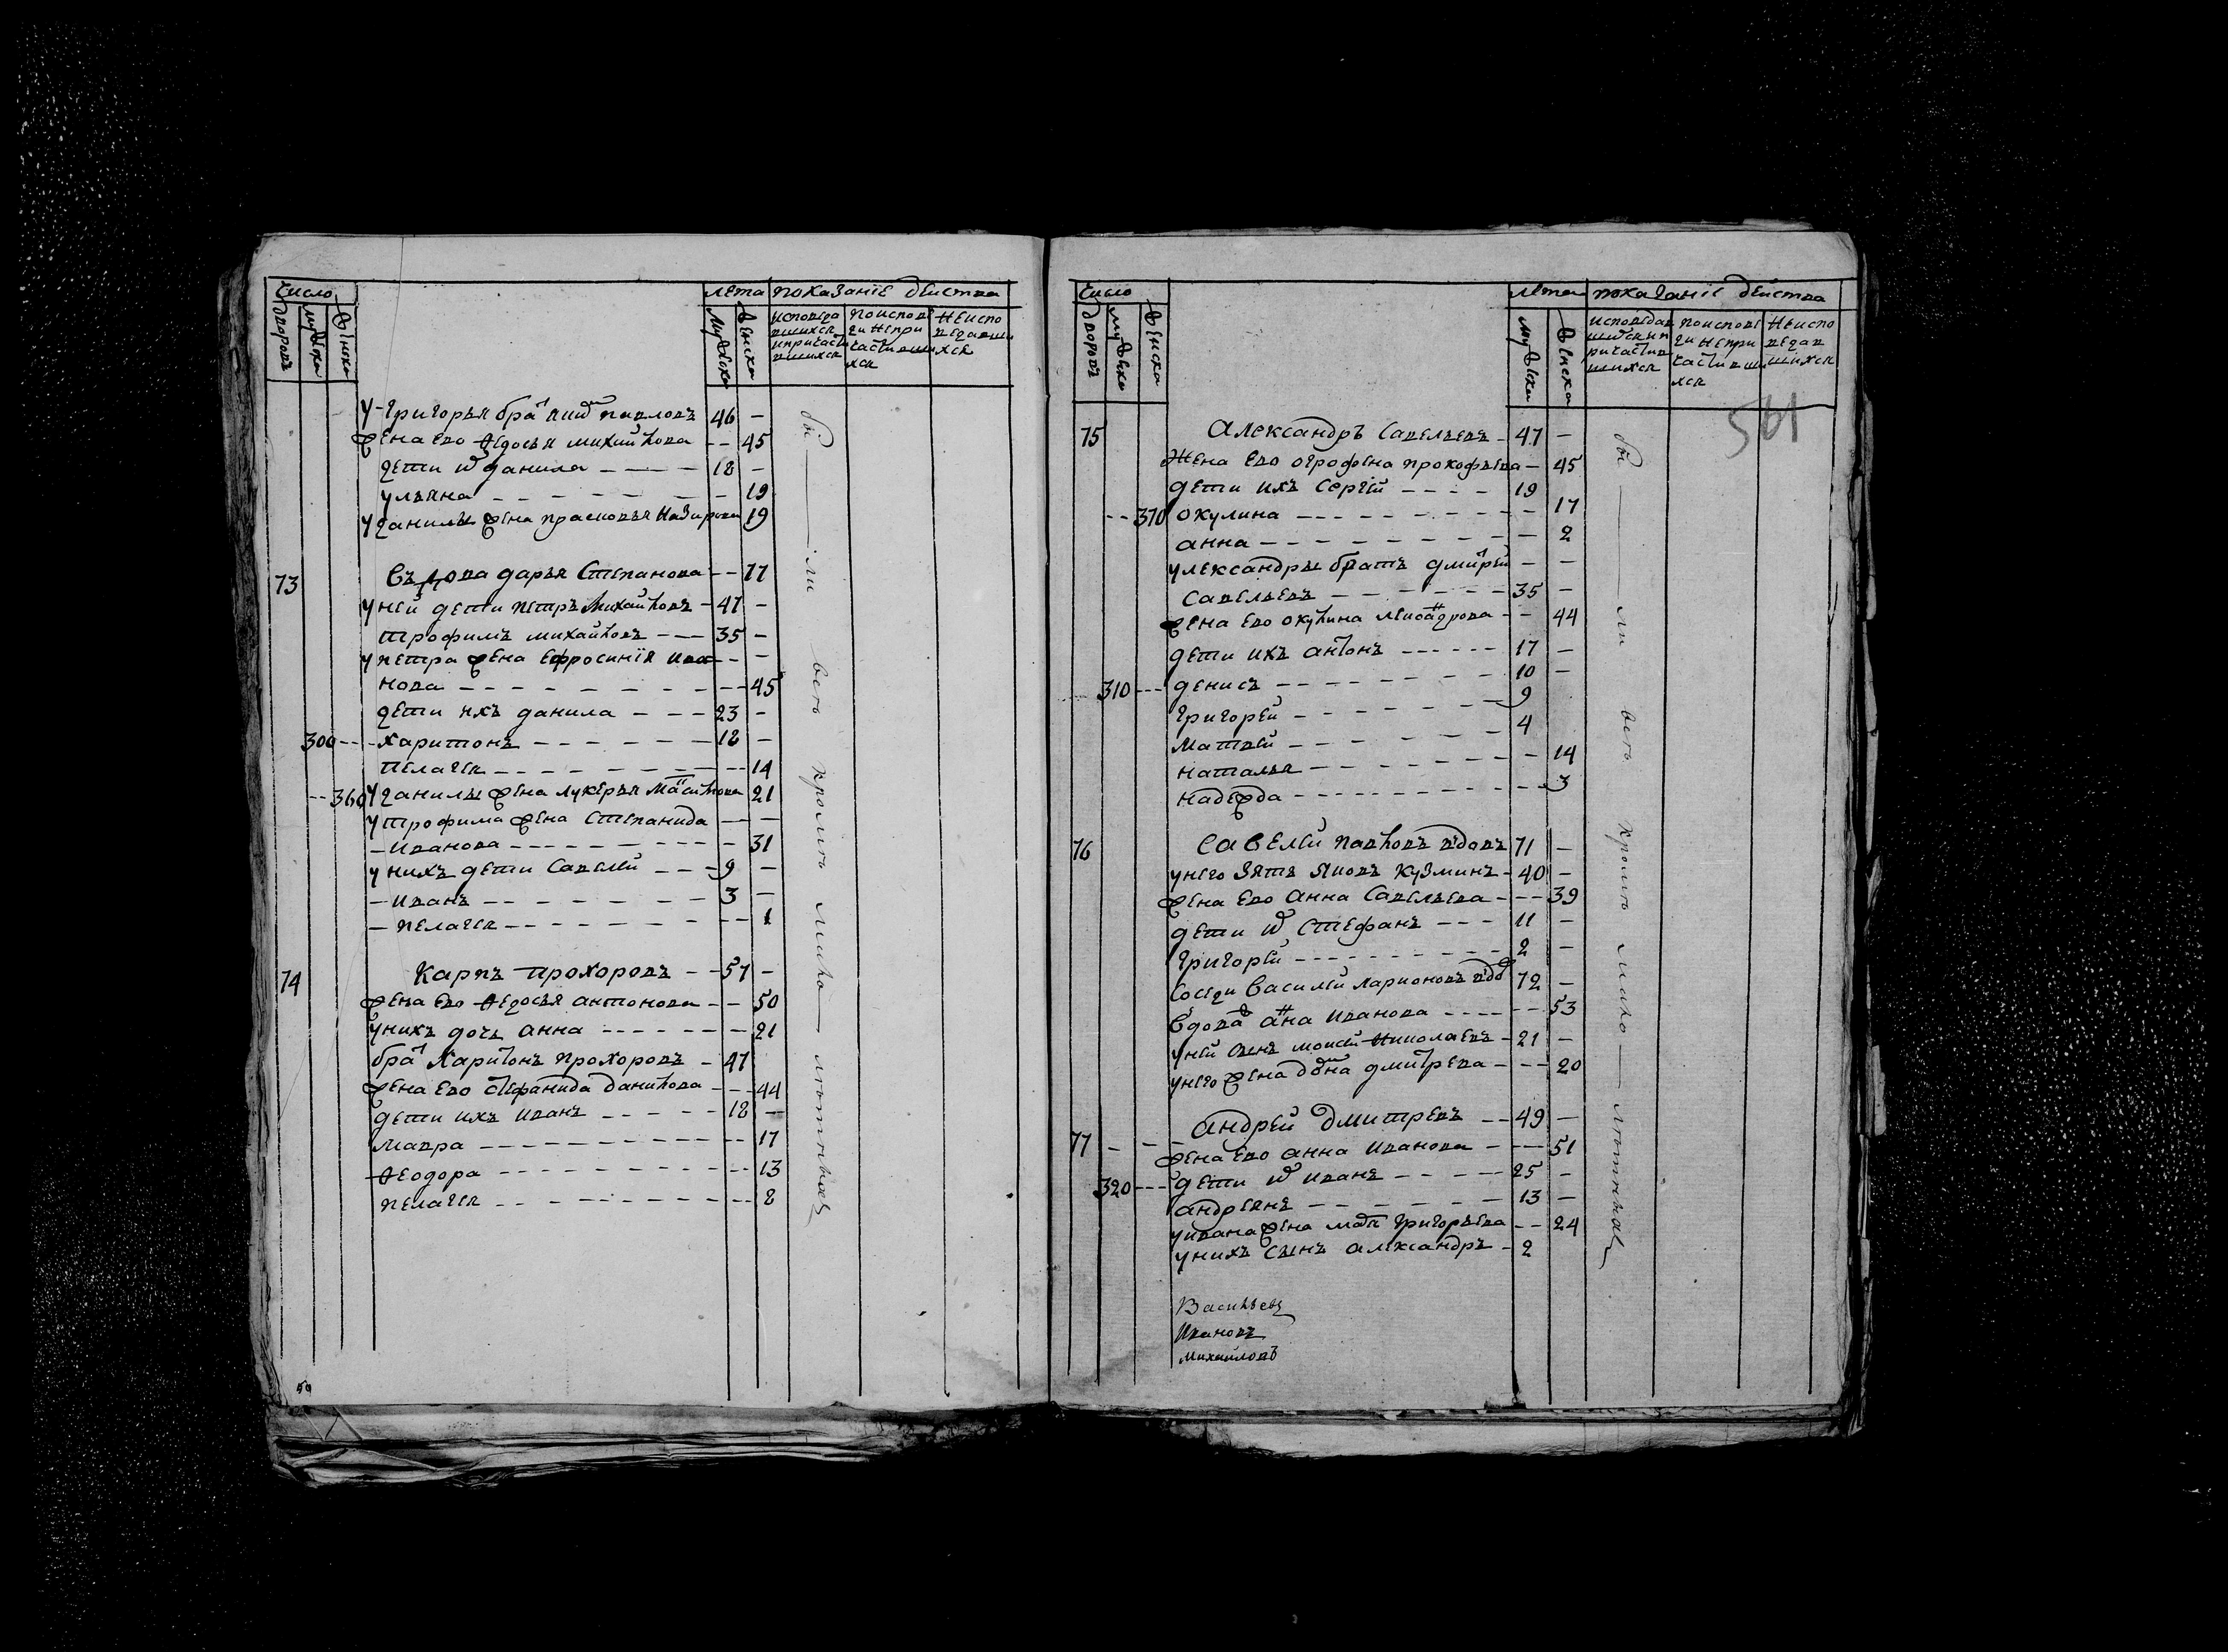 число
лета показанiе действа
дворовъ
мужеска
женска
мужеска
женска
исповеда
вшихся
и причасти
вшихся
по испове
ди не при
частивши
хся
не испо
ведавши
хся
у григорья братъ павловъ 46 -
жена ево федосья михаилова - - 45
дети данила - - - 18 -
ульяна - - - 19
у данилы жена прасковья назарова 19
73 вдова дарья степанова - - 77
у ней дети петръ михаиловъ - 47 -
трофимъ михаиловъ - - - 35 -
у петра жена ефросинiя ива - - -
нова - - - 45
дети ихъ данила - - - 23 -
300 - - - харитонъ - - - 18 -
пелагея - - - 14
- - 360 у данилы жена лукерья 21
у трофима жена степанида - -
- иванова - - - 31
у нихъ дети савелей - - - 9 -
- иванъ - - - 3 -
- пелагея - - - 1
74 карпъ прохоровъ - - 57 -
жена ево федосья антонова - - 50
у нихъ дочь анна - - - 21
братъ харитонъ прохоровъ - 47
жена ево стефанида данилова - - - 44
дети ихъ иванъ - - - 18 -
мавра - - - 17
феодора - - - 13
пелагея - - - 8
бы ли веть кромить
число
лета показанiе действа
дворовъ
мужеска
женска
мужеска
женска
исповедав
шихся и п
ричастив
шихся
по испове
ди не при
частивши
хся
не испо
ведав
шихся
541
75 александръ савельевъ - 47 -
жена ево огрофена прокофьева - 45
дети ихъ сергей - - - 19
- - 370 окулина - - - 17
анна - - - 2
у лександры братъ дмитрей - -
савельевъ - - - 35 -
жена ево окулина - - 44
дети ихъ антонъ - - - 17 -
310 - - - денисъ - - - 10 -
григорей - - - 9
матвей - - - 4
наталья - - - 14
надежда - - - 3
76 савелей павловъ вдовъ 71 -
у него зять яковъ кузминъ - 40 -
жена ево анна савельева - - - 39
дети стефанъ - - - 11 -
григорей - - - 2 -
соседи василей ларионовъ вдов 72 -
вдова анна иванова - - - 53
у ней сынъ моисей николаевъ - 21 -
у него жена домна дмитрева - - - 20
77 - - - андрей дмитревъ - - 49 -
жена ево анна иванова - - - 51
320 - - - дети иванъ - - - 25 -
андреянъ - - - 13 -
у ивана жена григорьева - - 24
у нихъ сынъ александръ - 2
бы ли веть кромить
васильевъ
ивановъ
михаиловъ